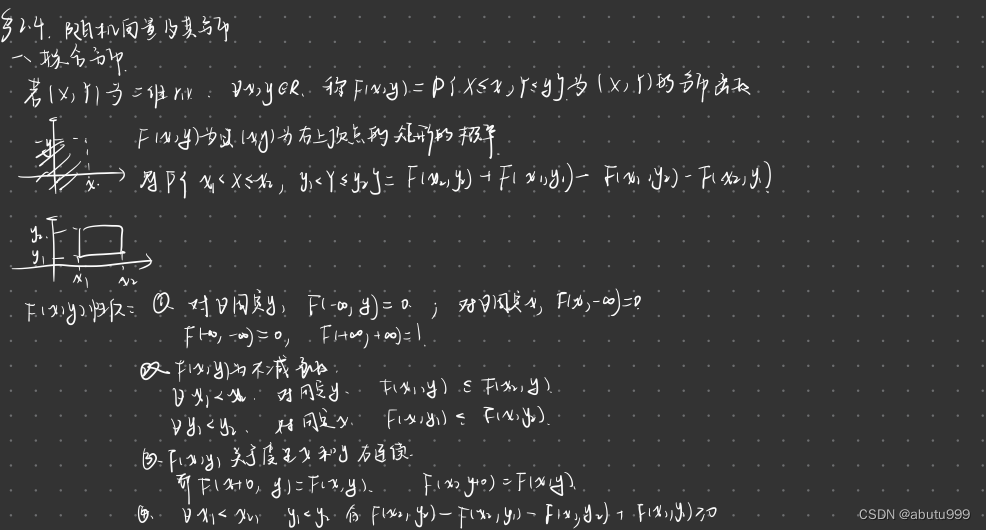 §2.4. 随机向量及其分布
一、联合分布
若(X,Y)为二维r.v. ∀x,y∈R. 称F(x,y)=P{X≤x,Y≤y}为(X,Y)的分布函数
F(x,y)为以(x,y)为右上顶点的矩形的概率
y
x
对P{x₁<X≤x₂, y₁<Y≤y₂}=F(x₂,y₂)+F(x₁,y₁)-F(x₁,y₂)-F(x₂,y₁)
y₂
y₁
x₁ x₂
F(x,y)性质: ① 对∀固定y, F(-∞,y)=0 ; 对∀固定x, F(x,-∞)=0
F(-∞,-∞)=0, F(+∞,+∞)=1
② F(x,y)为不减函数
∀x₁<x₂. 对固定y. F(x₁,y)≤F(x₂,y).
∀y₁<y₂. 对固定x. F(x,y₁)≤F(x,y₂).
③. F(x,y)关于变量x和y右连续.
即F(x+0,y)=F(x,y). F(x,y+0)=F(x,y).
④. ∀x₁<x₂, y₁<y₂ 有F(x₂,y₂)-F(x₂,y₁)-F(x₁,y₂)+F(x₁,y₁)≥0
CSDN @abutu999